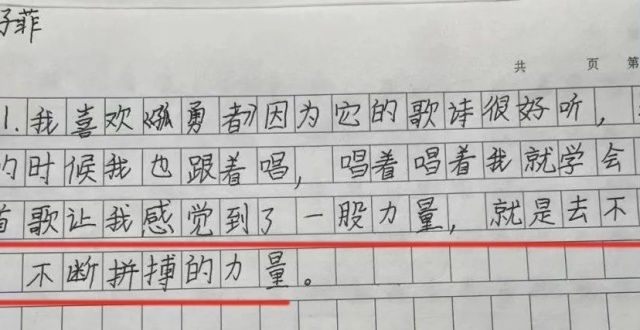 子菲
共 页 第
1.我喜欢《孤勇者》因为它的歌诗很好听,
的时候我也跟着唱,唱着唱着我就学会
首歌让我感觉到了一股力量,就是去不
不断拼搏的力量。